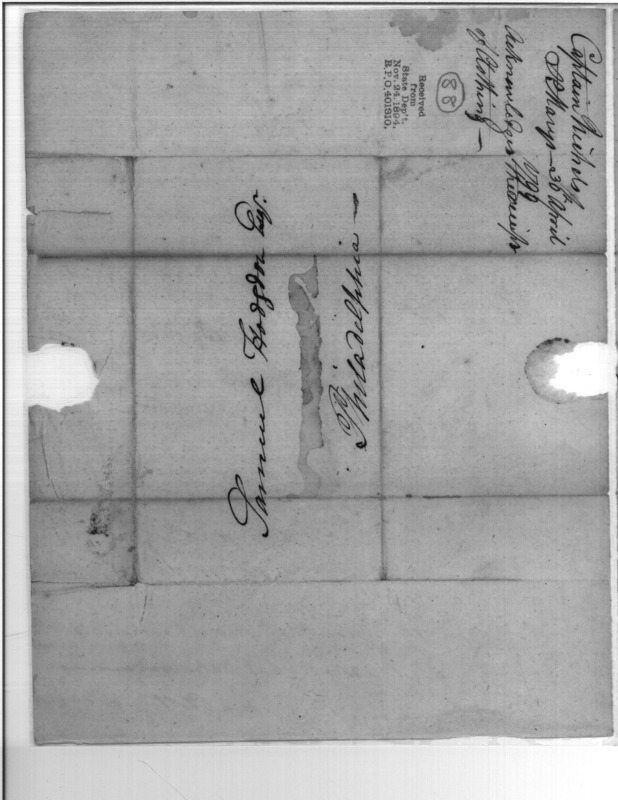 Captain Nichols
St Marys — 30th April
1799
Acknowledges the receipt
of Clothing —
88
Received
from
State Dep't.
Nov. 24, 1894.
R.P.O. 401310.
Samuel Hodgdon Esqr.
Philadelphia —